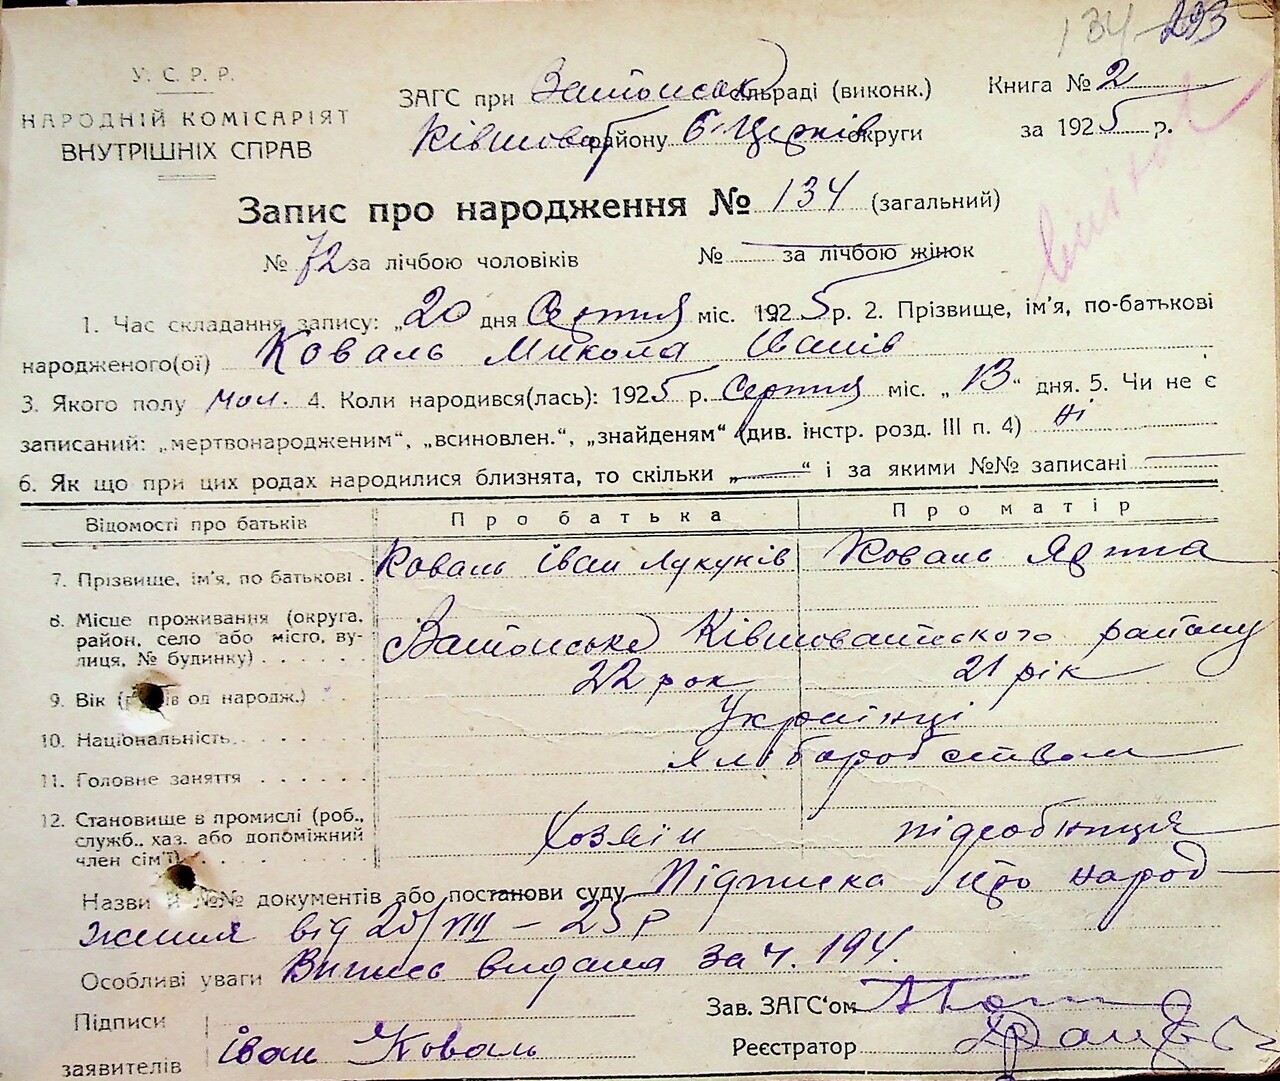 134 293
У. С. Р. Р.
НАРОДНІЙ КОМІСАРІЯТ
ВНУТРІШНІХ СПРАВ
ЗАГС при сільраді (виконк.)
району Б-Церків округи
Книга № 2
за 1925 р.
Запис про народження № 134 (загальний)
№ 72 за лічбою чоловіків № за лічбою жінок
1. Час складання запису: „20 дня Серпня міс. 1925 р. 2. Прізвище, ім'я, по-батькові
народженого(ої) Коваль Микола Іванів
3. Якого полу чол. 4. Коли народився(лась): 1925 р. Серпня міс. „13“ дня. 5. Чи не є
записаний: „мертвонародженим“, „всиновлен.“, „знайденям“ (див. інстр. розд. III п. 4) ні
6. Як що при цих родах народилися близнята, то скільки „ “ і за якими №№ записані
Відомості про батьків Про батька Про матір
7. Прізвище, ім'я, по батькові . Коваль Іван Коваль
8. Місце проживання (округа, район, село або місто, вулиця, № будинку) . . . . . . Ківшоватського району
9. Вік ( од народж.) 22 рок 21 рік
10. Національність. . . . . . Українці
11. Головне заняття . . . . . .
12. Становище в промислі (роб., служб., хаз. або допоміжний член сім'ї). . . . . . Хозяїн
Назви й №№ документів або постанови суду Підписка про народ-
ження від 20/VIII – 25 р
Особливі уваги Випись видана за ч. 194.
Підписи
заявителів Іван Коваль
Зав. ЗАГС'ом
Реєстратор